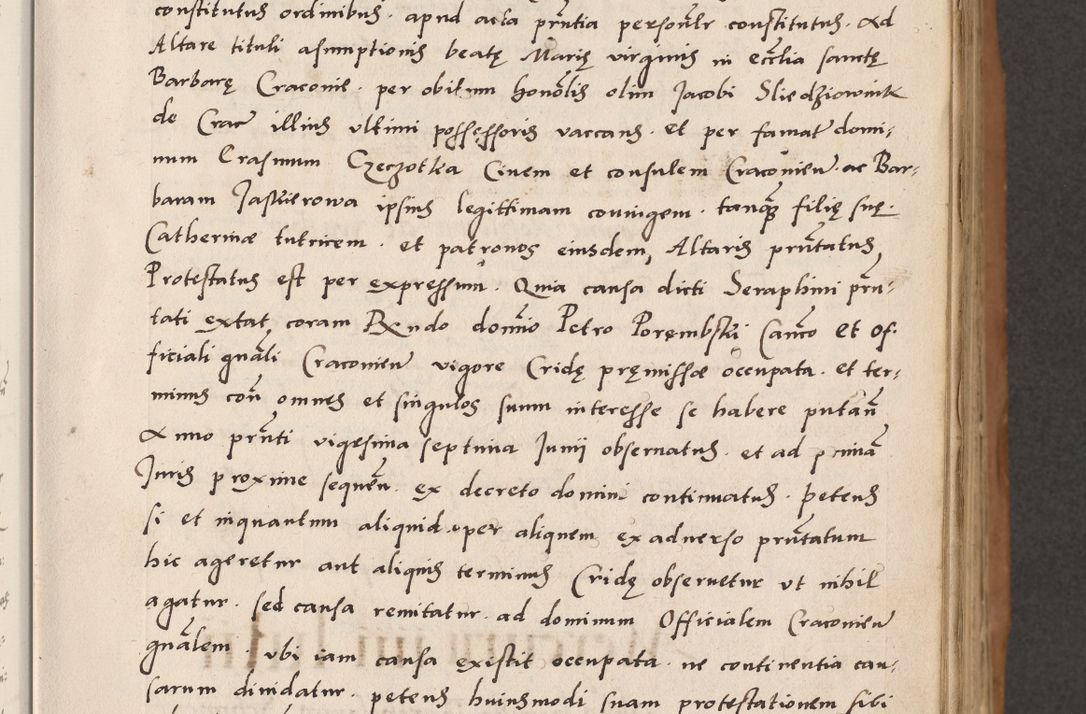 constitutus ordinibus . apud acta prñtia personlr constitutus . Ad
Altare tituli assumptionis beatę Marię virginis in eccłia sanctę
Barbarę Craconie . per obitum honołlis olim Jacobi Sliedziownik
de Crac illius vltimi possessoris vaccans . et per famat domi-
num Erasmum Czeczotka Ciuem et consulem Cracouien ac Bar-
baram Jaskierowa ipsius legittimam coniugem . tanq̃ filię suę .
Catherinæ tutricem . et patronos eiusdem Altaris prñtatus
Protestatus est per expressum . Quia causa dicti Seraphini prñ-
tati extat coram Rndo domĩo Petro Porembski Canco et Of-
ficiali gnãli Cracouien vigore Cridę pręmissæ occupata . et ter-
minus coñ omnes et singulos suum interesse se habere putañ
Anno prñti vigesima septima Junij obseruatus . et ad primã
Juris proxime sequeñ . ex decreto domini continuatus . petens
si et inquantum aliquid per aliquem ex aduerso prñtatum
hic ageretur aut aliquis terminus Cridę obseruetur vt nihil
agatur . sed causa remitatur . ad dominum Officialem Cracouien
gnãlem . vbi iam causa existit occupata . ne continentia cau-
sarum diuidatur . petens huiusmodi suam protestationem sibi